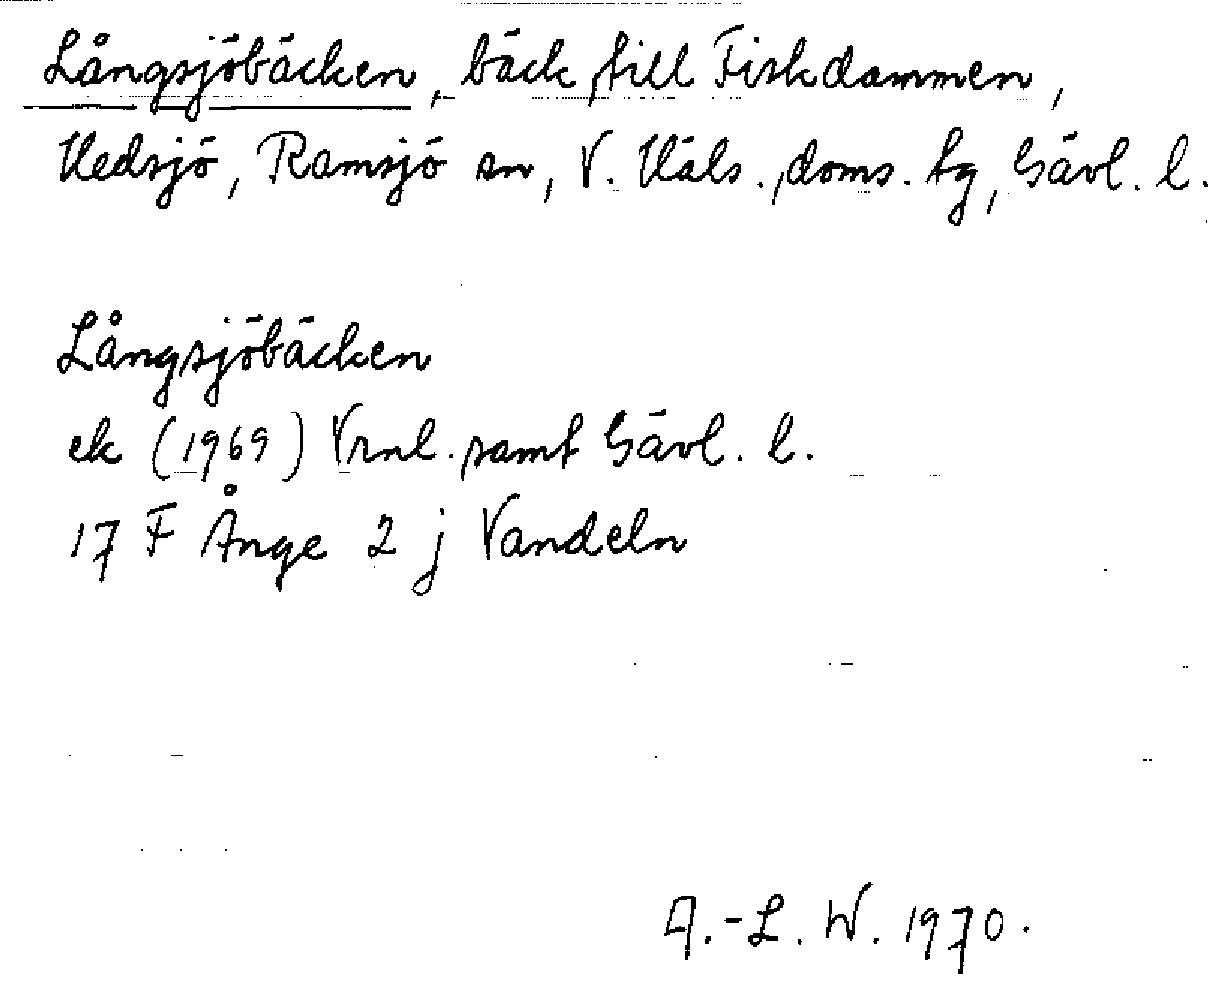 Långsjöbäcken, bäck till Fiskdammen,
Hedsjö, Ramsjö sn, V. Häls. doms. tg, Gävl. l.
Långsjöbäcken
ek (1969) Vrnl. samt Gävl. l.
17 F Ånge 2 j Vandeln
A.-L. W. 1970.